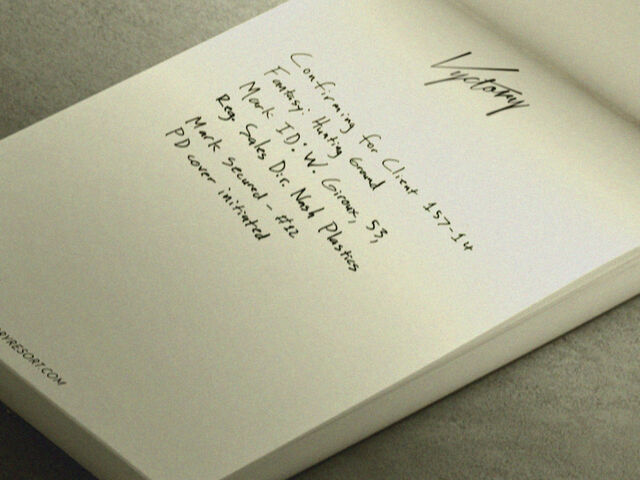 Vyctory
Confirming for Client 157-14
Fantasy: Hunting Ground
Mark ID: W. Giroux, 53,
Reg. Sales Dir. Nash Plastics
Mark secured - #12
PD cover initiated
RYRESORT.COM